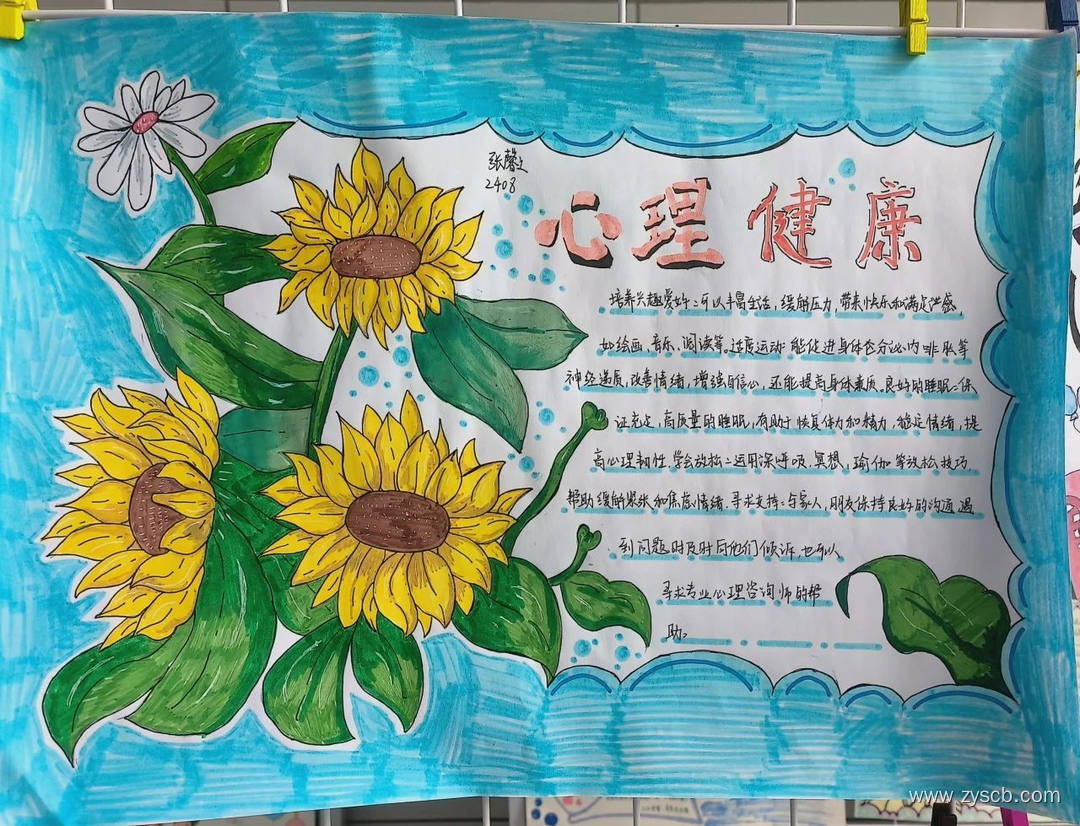 张馨文
2408
心理健康
培养兴趣爱好：可以丰富生活，缓解压力，带来快乐和满足感，
如绘画，音乐，阅读等。适度运动：能促进身体分泌内啡肽等
神经递质，改善情绪，增强自信心，还能提高身体素质。良好的睡眠：保
证充足，高质量的睡眠，有助于恢复体力和精力，稳定情绪，提
高心理韧性。学会放松：运用深呼吸，冥想，瑜伽等放松技巧，
帮助缓解紧张和焦虑情绪。寻求支持：与家人，朋友保持良好的沟通，遇
到问题时及时向他们倾诉，也可以
寻求专业心理咨询师的帮
助。
www.zyscb.com